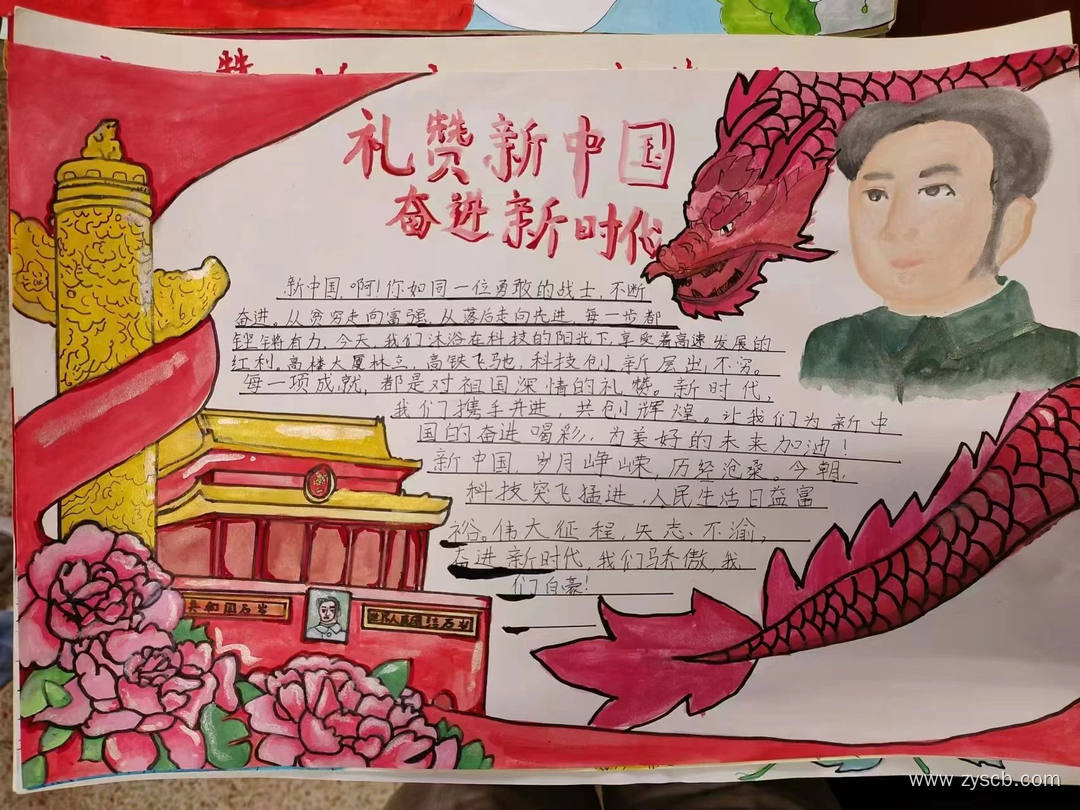 礼赞新中国
奋进新时代
新中国,啊!你如同一位勇敢的战士,不断
奋进。从贫穷走向富强,从落后走向先进,每一步都
铿锵有力,今天,我们沐浴在科技的阳光下,享受着高速发展的
红利。高楼大厦林立,高铁飞驰,科技创新层出不穷。
每一项成就,都是对祖国深情的礼赞。新时代,
我们携手并进,共创辉煌。让我们为新中
国的奋进喝彩,为美好的未来加油!
新中国,岁月峥嵘,历经沧桑。今朝,
科技突飞猛进,人民生活日益富
裕。伟大征程,矢志不渝,
奋进新时代,我们骄傲,我
们自豪!
共和国万岁
www.zyscb.com